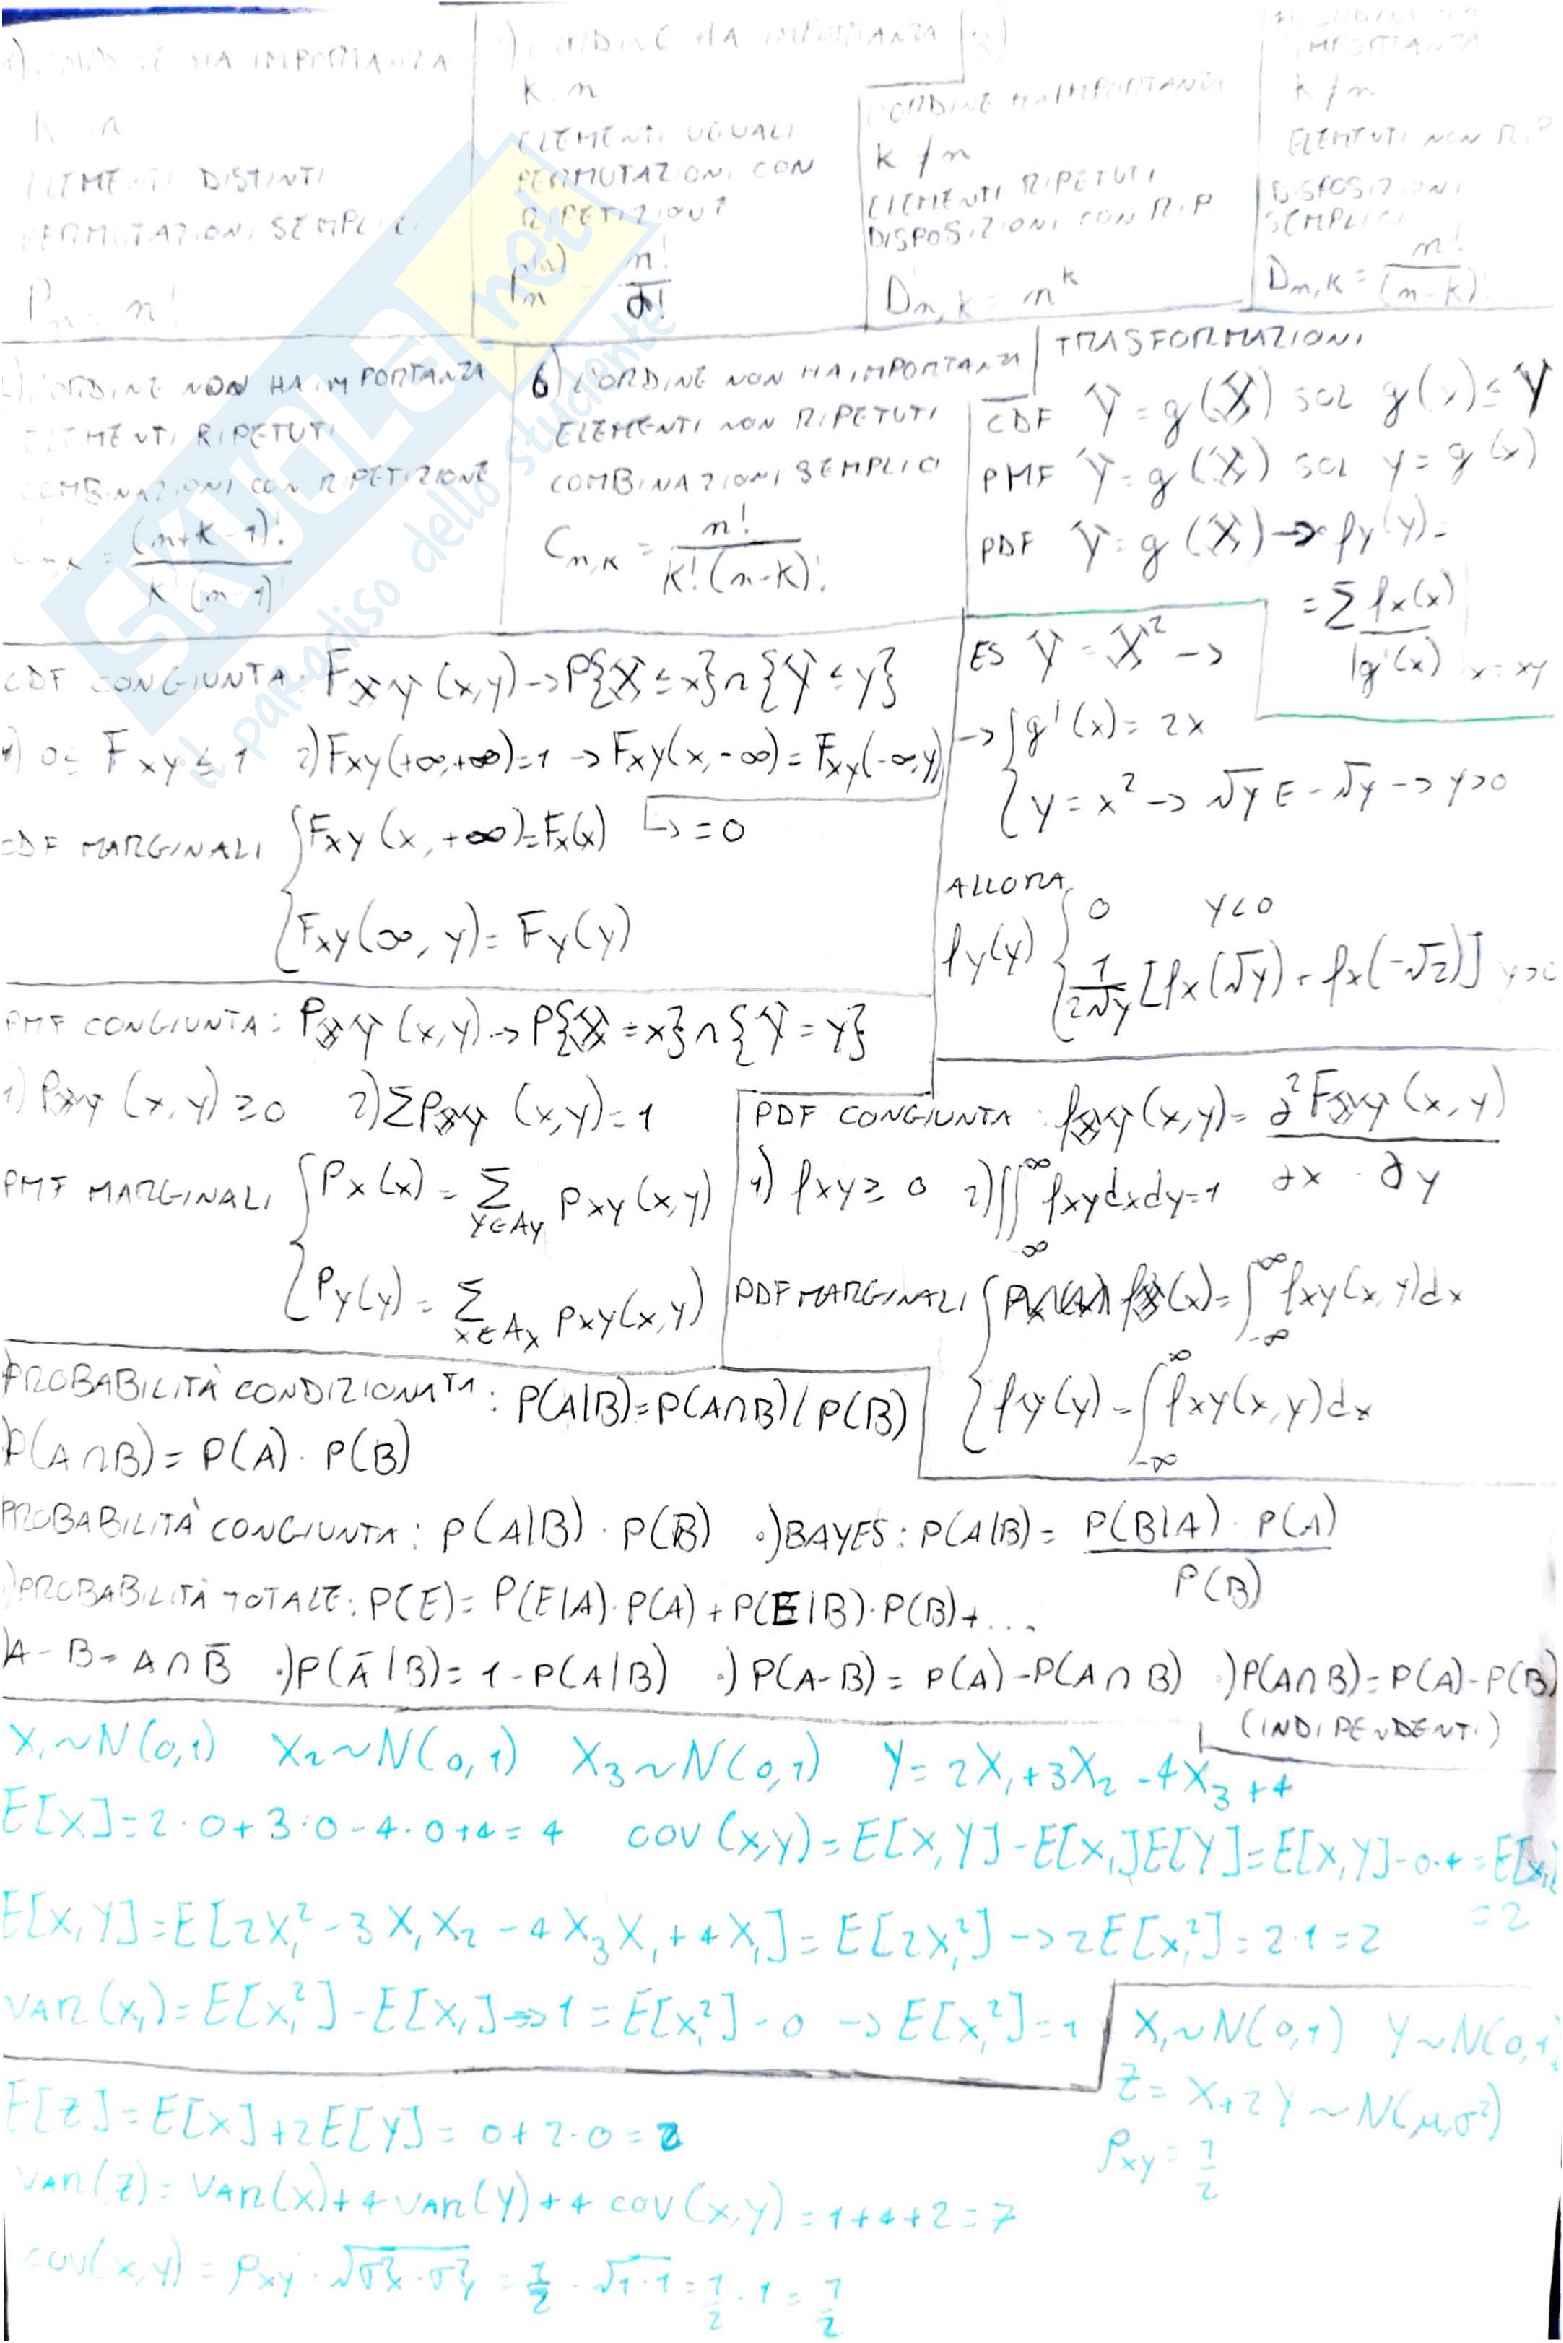 L'ORDINE HA IMPORTANZA
K n
ELEMENTI DISTINTI
PERMUTAZIONI SEMPLICI
Pn = n!
ORDINE HA IMPORTANZA
K n
ELEMENTI UGUALI
PERMUTAZIONI CON
RIPETIZIONE
n!
α!
L'ORDINE HA IMPORTANZA
K ≠ n
ELEMENTI RIPETUTI
DISPOSIZIONI CON RIP
Dn,k = n^k
IMPORTANZA
K ≠ n
ELEMENTI NON RIP
DISPOSIZIONI
SEMPLICI
Dn,k = n! / (n-k)!
L'ORDINE NON HA IMPORTANZA
ELEMENTI RIPETUTI
COMBINAZIONI CON RIPETIZIONE
Cn,k = (n+k-1)! / K!(n-1)!
6) L'ORDINE NON HA IMPORTANZA
ELEMENTI NON RIPETUTI
COMBINAZIONI SEMPLICI
Cn,k = n! / K!(n-k)!
TRASFORMAZIONI
CDF Y = g(X) SOL g(x) ≤ Y
PMF Y = g(X) SOL y = g(x)
PDF Y = g(X) → fy(y) =
= Σ fx(x) / |g'(x)| | x = xy
ES Y = X² →
→ { g'(x) = 2x
{ y = x² → √y E -√y → y>0
ALLORA
fy(y) { 0 y<0
{ 1/2√y [fx(√y) + fx(-√2)] y>0
CDF CONGIUNTA: FXY(x,y) → P{X ≤ x} ∩ {Y ≤ y}
1) 0 ≤ Fxy ≤ 1 2) Fxy(+∞,+∞)=1 → Fxy(x,-∞) = Fxy(-∞,y)
↳ = 0
CDF MARGINALI { Fxy(x,+∞)=Fx(x)
{ Fxy(∞,y) = Fy(y)
PMF CONGIUNTA: PXY(x,y) → P{X = x} ∩ {Y = y}
1) PXY(x,y) ≥ 0 2) ΣPXY(x,y) = 1
PMF MARGINALI { Px(x) = Σ y∈Ay Pxy(x,y)
{ Py(y) = Σ x∈Ax Pxy(x,y)
PDF CONGIUNTA: fXY(x,y) = ∂²FXY(x,y) / ∂x · ∂y
1) fxy ≥ 0 2) ∬ ∞ ∞ fxy dxdy = 1
PDF MARGINALI { (x) = ∫ -∞ ∞ fxy(x,y)dx
{ fy(y) = ∫ -∞ ∞ fxy(x,y)dx
PROBABILITÀ CONDIZIONATA: P(A|B)=P(A∩B)/P(B)
P(A∩B) = P(A)·P(B)
PROBABILITÀ CONGIUNTA: P(A|B)·P(B) •)BAYES: P(A|B) = P(B|A)·P(A) / P(B)
PROBABILITÀ TOTALE: P(E) = P(E|A)·P(A) + P(E|B)·P(B)+...
A-B = A∩B̄ •)P(Ā|B) = 1-P(A|B) •) P(A-B) = P(A)-P(A∩B) •)P(A∩B)=P(A)-P(B)
(INDIPENDENTI)
X₁~N(0,1) X₂~N(0,1) X₃~N(0,1) Y = 2X₁+3X₂-4X₃+4
E[X] = 2·0+3·0-4·0+4 = 4 COV(x,y) = E[X₁Y]-E[X₁]E[Y] = E[X₁Y]-0·4 =
= 2
E[X₁Y] = E[2X₁²-3X₁X₂-4X₃X₁+4X₁] = E[2X₁²] → 2E[X₁²] = 2·1 = 2
VAR(X₁) = E[X₁²]-E[X₁] → 1 = E[X₁²]-0 → E[X₁²] = 1
X₁~N(0,1) Y~N(0,1)
Z = X+2Y~N(μ,σ²)
ρxy = 1/2
E[Z] = E[X]+2E[Y] = 0+2·0 = 2
VAR(Z) = VAR(X)+4VAR(Y)+4 COV(X,Y) = 1+4+2 = 7
COV(X,Y) = ρxy · √σ²x·σ²y = 1/2 · √1·1 = 1/2 · 1 = 1/2
SKUOLA.net
il paradiso dello studente